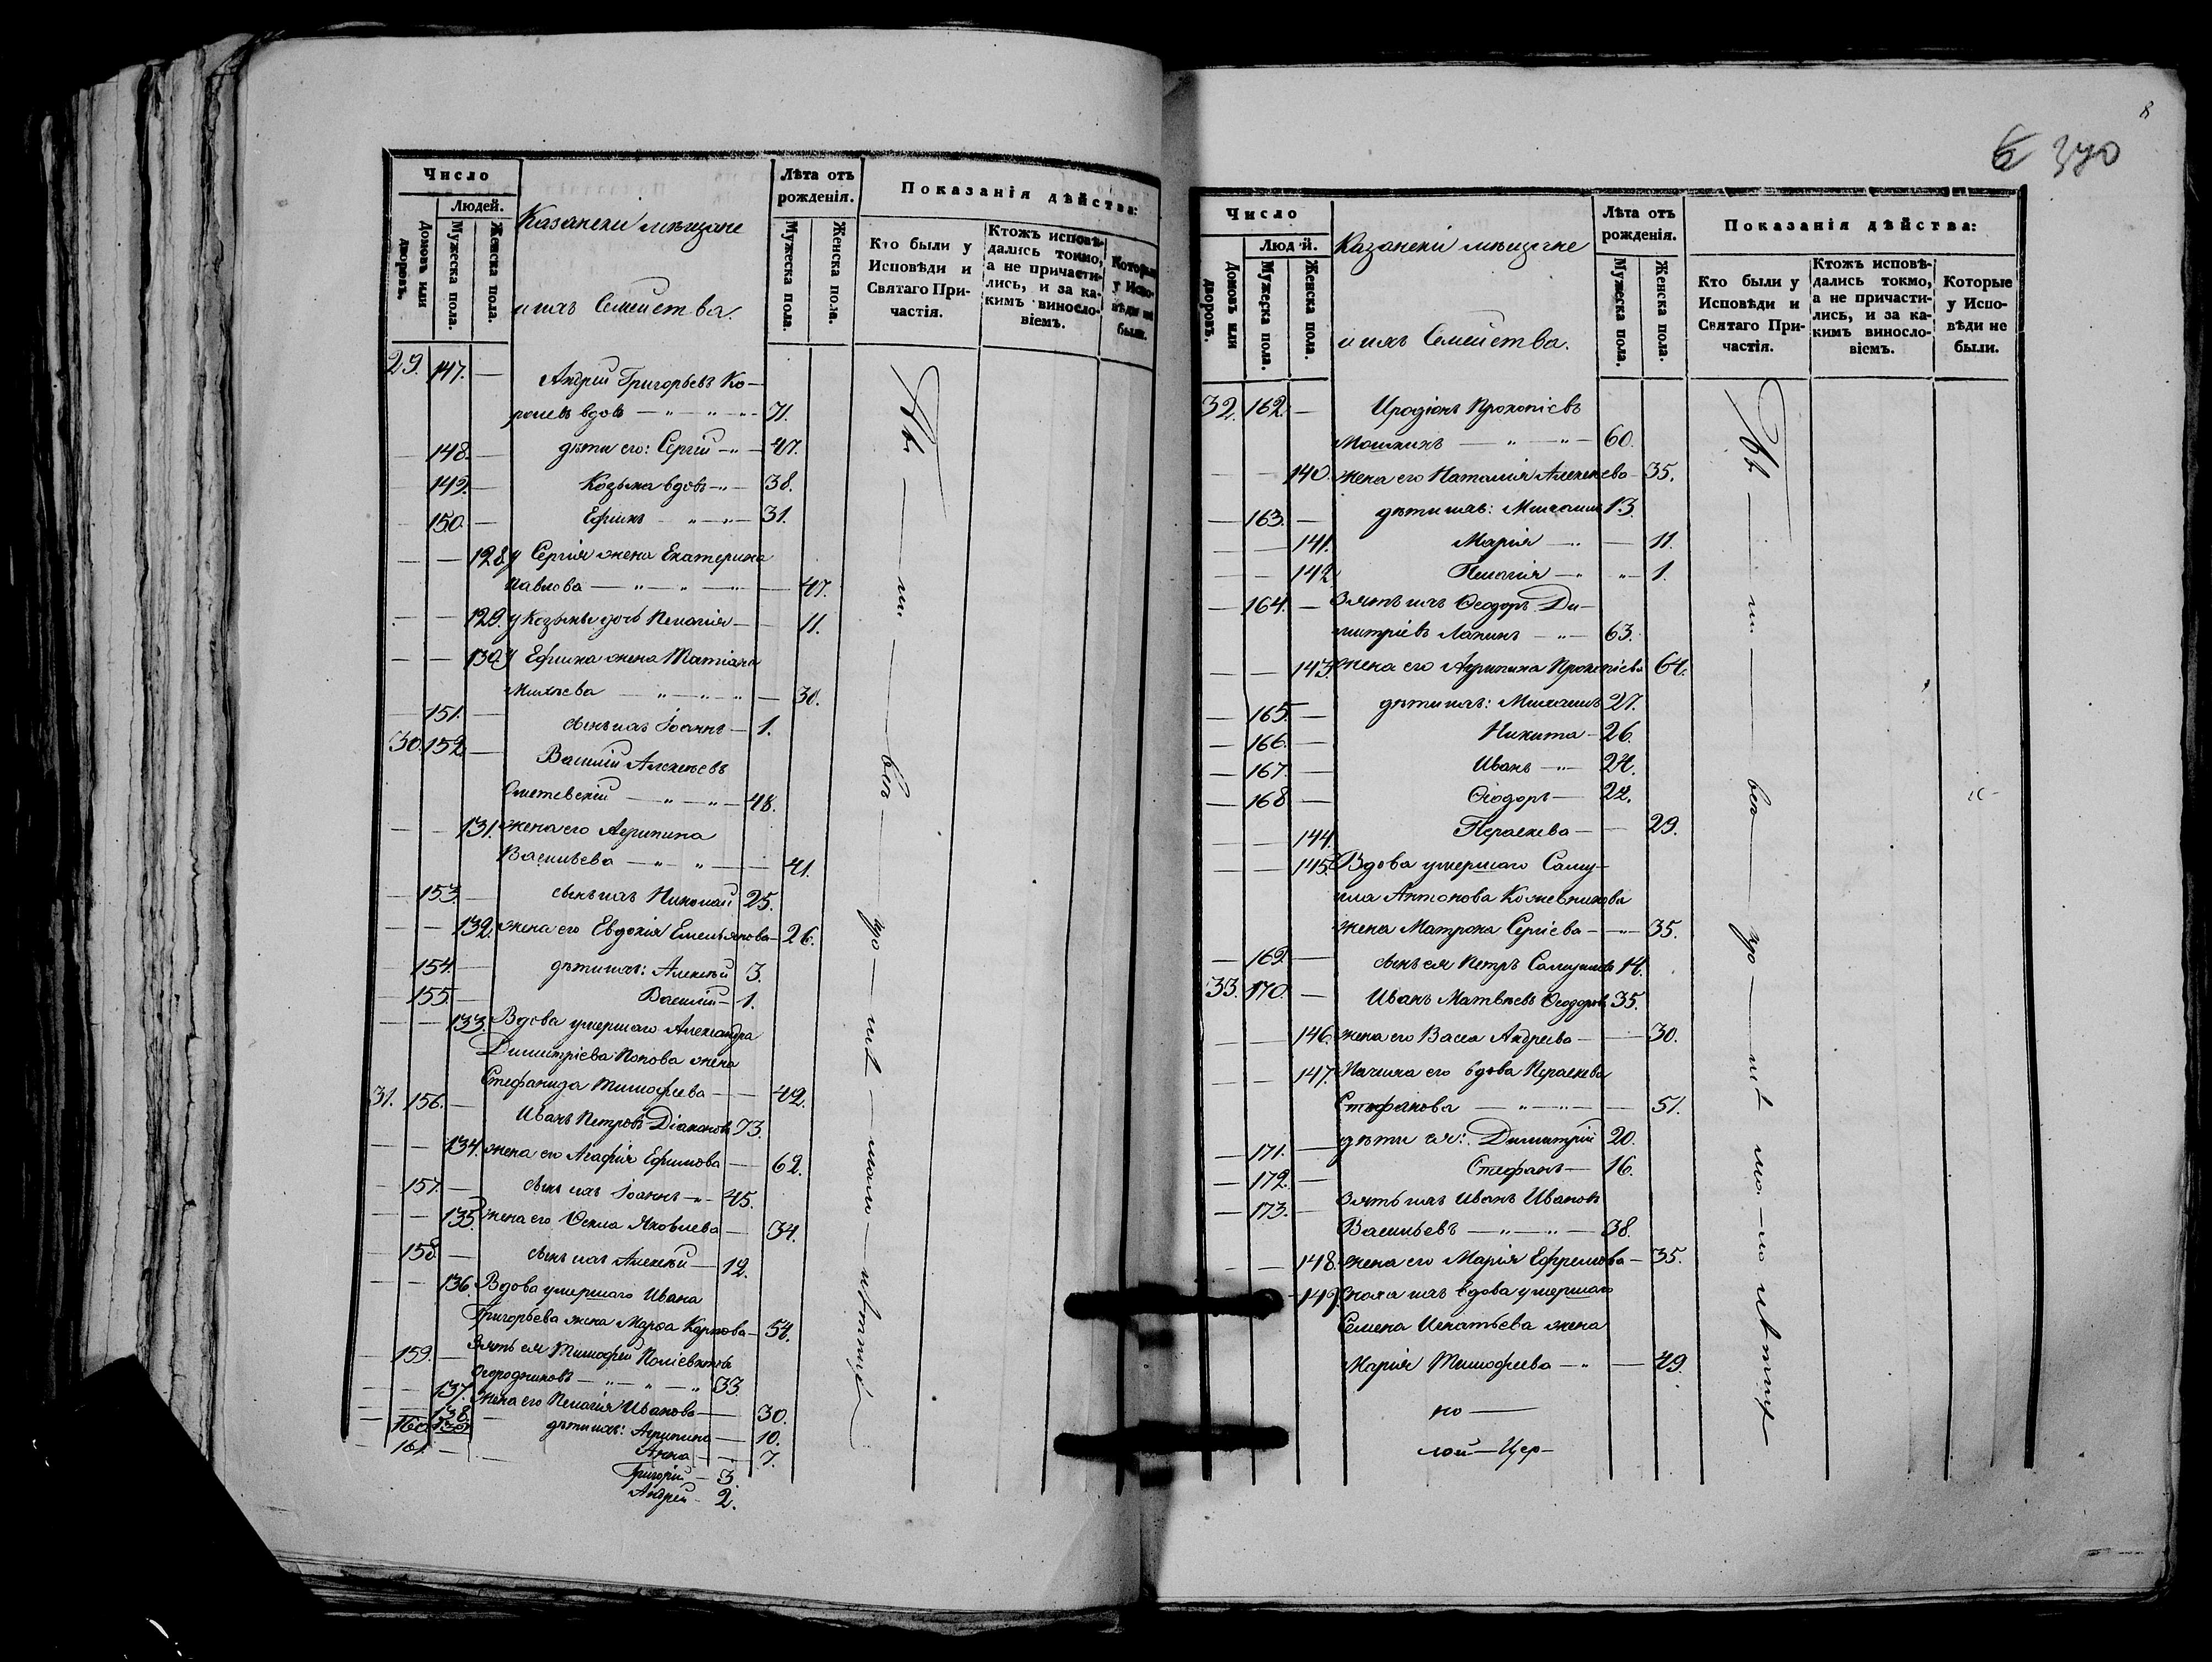 Число
Людей.
Домовъ или дворовъ.
Мужеска пола.
Женска пола.
Казанскіи мѣщане
и ихъ Семейства.
Лѣта отъ рожденія.
Мужеска пола.
Женска пола.
Показанія дѣйства:
Кто были у Исповѣди и Святаго Причастія.
Ктожъ исповѣдались токмо, а не причастились, и за какимъ винословіемъ.
Которые у Исповѣди не были.
29. 147. — Андрей Григорьевъ Ко-
ролевъ вдовъ — 71.
— 148. — дѣти его: Сергій — 47.
149. — Козьма вдовъ — 38.
150. — Ефимъ — 31.
— — 128. у Сергія жена Екатерина
Павлова — 47.
— — 129. у Козьмы дочь Пелагія — 11.
— — 130. У Ефима жена Татіана
30.
151. — сынъ ихъ Іоаннъ — 1.
30. 152. — Василій Алексѣевъ
48.
— — 131. жена его Агрипина
Васильева — 41.
— 153. — сынъ ихъ Николай 25.
— — 132. жена его Евдокія Емельянова — 26.
— 154. — дѣти ихъ: Алексѣй 3.
— 155. — Василій — 1.
— — 133. Вдова умершаго Александра
Димитріева Попова жена
Стефанида Тимофеева — 42.
31. 156. — Иванъ Петровъ Діаконовъ 73.
— — 134. жена его Агафія Ефимова — 62.
— 157. — сынъ ихъ Іоаннъ — 45.
— — 135. жена его Ѳекла Яковлева — 34.
— 158. — сынъ ихъ Алексѣй — 12.
— — 136. Вдова умершаго Ивана
Григорьева жена Марѳа Карпова — 54.
— 159. — Зять ея Тимофей Поліевктовъ
Огородниковъ — 33.
— — 137. жена его Пелагія Иванова — 30.
— — 138. дѣти ихъ: Агрипина — 10.
160. 139. Анна — 7.
161. — Григорій — 3.
Андрей — 2.
8
370
Число
Людей.
Домовъ или дворовъ.
Мужеска пола.
Женска пола.
Казанскіи мѣщане
и ихъ Семейства.
Лѣта отъ рожденія.
Мужеска пола.
Женска пола.
Показанія дѣйства:
Кто были у Исповѣди и Святаго Причастія.
Ктожъ исповѣдались токмо, а не причастились, и за какимъ винословіемъ.
Которые у Исповѣди не были.
32. 162. — Иродіонъ Прокопіевъ
Мошкинъ — 60.
— — 140. жена его Наталія Алексѣева — 35.
— 163. — дѣти ихъ: Михаилъ 13.
— — 141. Марія — 11.
— — 142. Пелагія — 1.
— 164. — Зять ихъ Ѳеодоръ Ди-
митріевъ Лапинъ — 63.
— — 143. жена его Агрипина Прокопіева 64.
— 165. — дѣти ихъ: Михаилъ 27.
— 166. — Никита — 26.
— 167. — Иванъ — 24.
— 168. — Ѳеодоръ — 22.
— — 144. Параскева — 29.
— — 145. Вдова умершаго Саму-
ила Антонова Кожевникова
жена Матрона Сергіева — 35.
— 169. — сынъ ея Петръ Самуиловъ 14.
33. 170. — Иванъ Матвѣевъ Ѳеодоровъ 35.
— — 146. жена его Васса Андреева — 30.
— — 147. Мачиха его вдова Параскева
Стефанова — 51.
— 171. — дѣти ея: Димитрій 20.
— 172. — Стефанъ — 16.
— 173. — Зять ихъ Иванъ Ивановъ
Васильевъ — 38.
— — 148. жена его Марія Ефремова — 35.
— 149. Сноха ихъ вдова умершаго
Семена Игнатьева жена
Марія Тимофеева — 49.
лой — Цер-